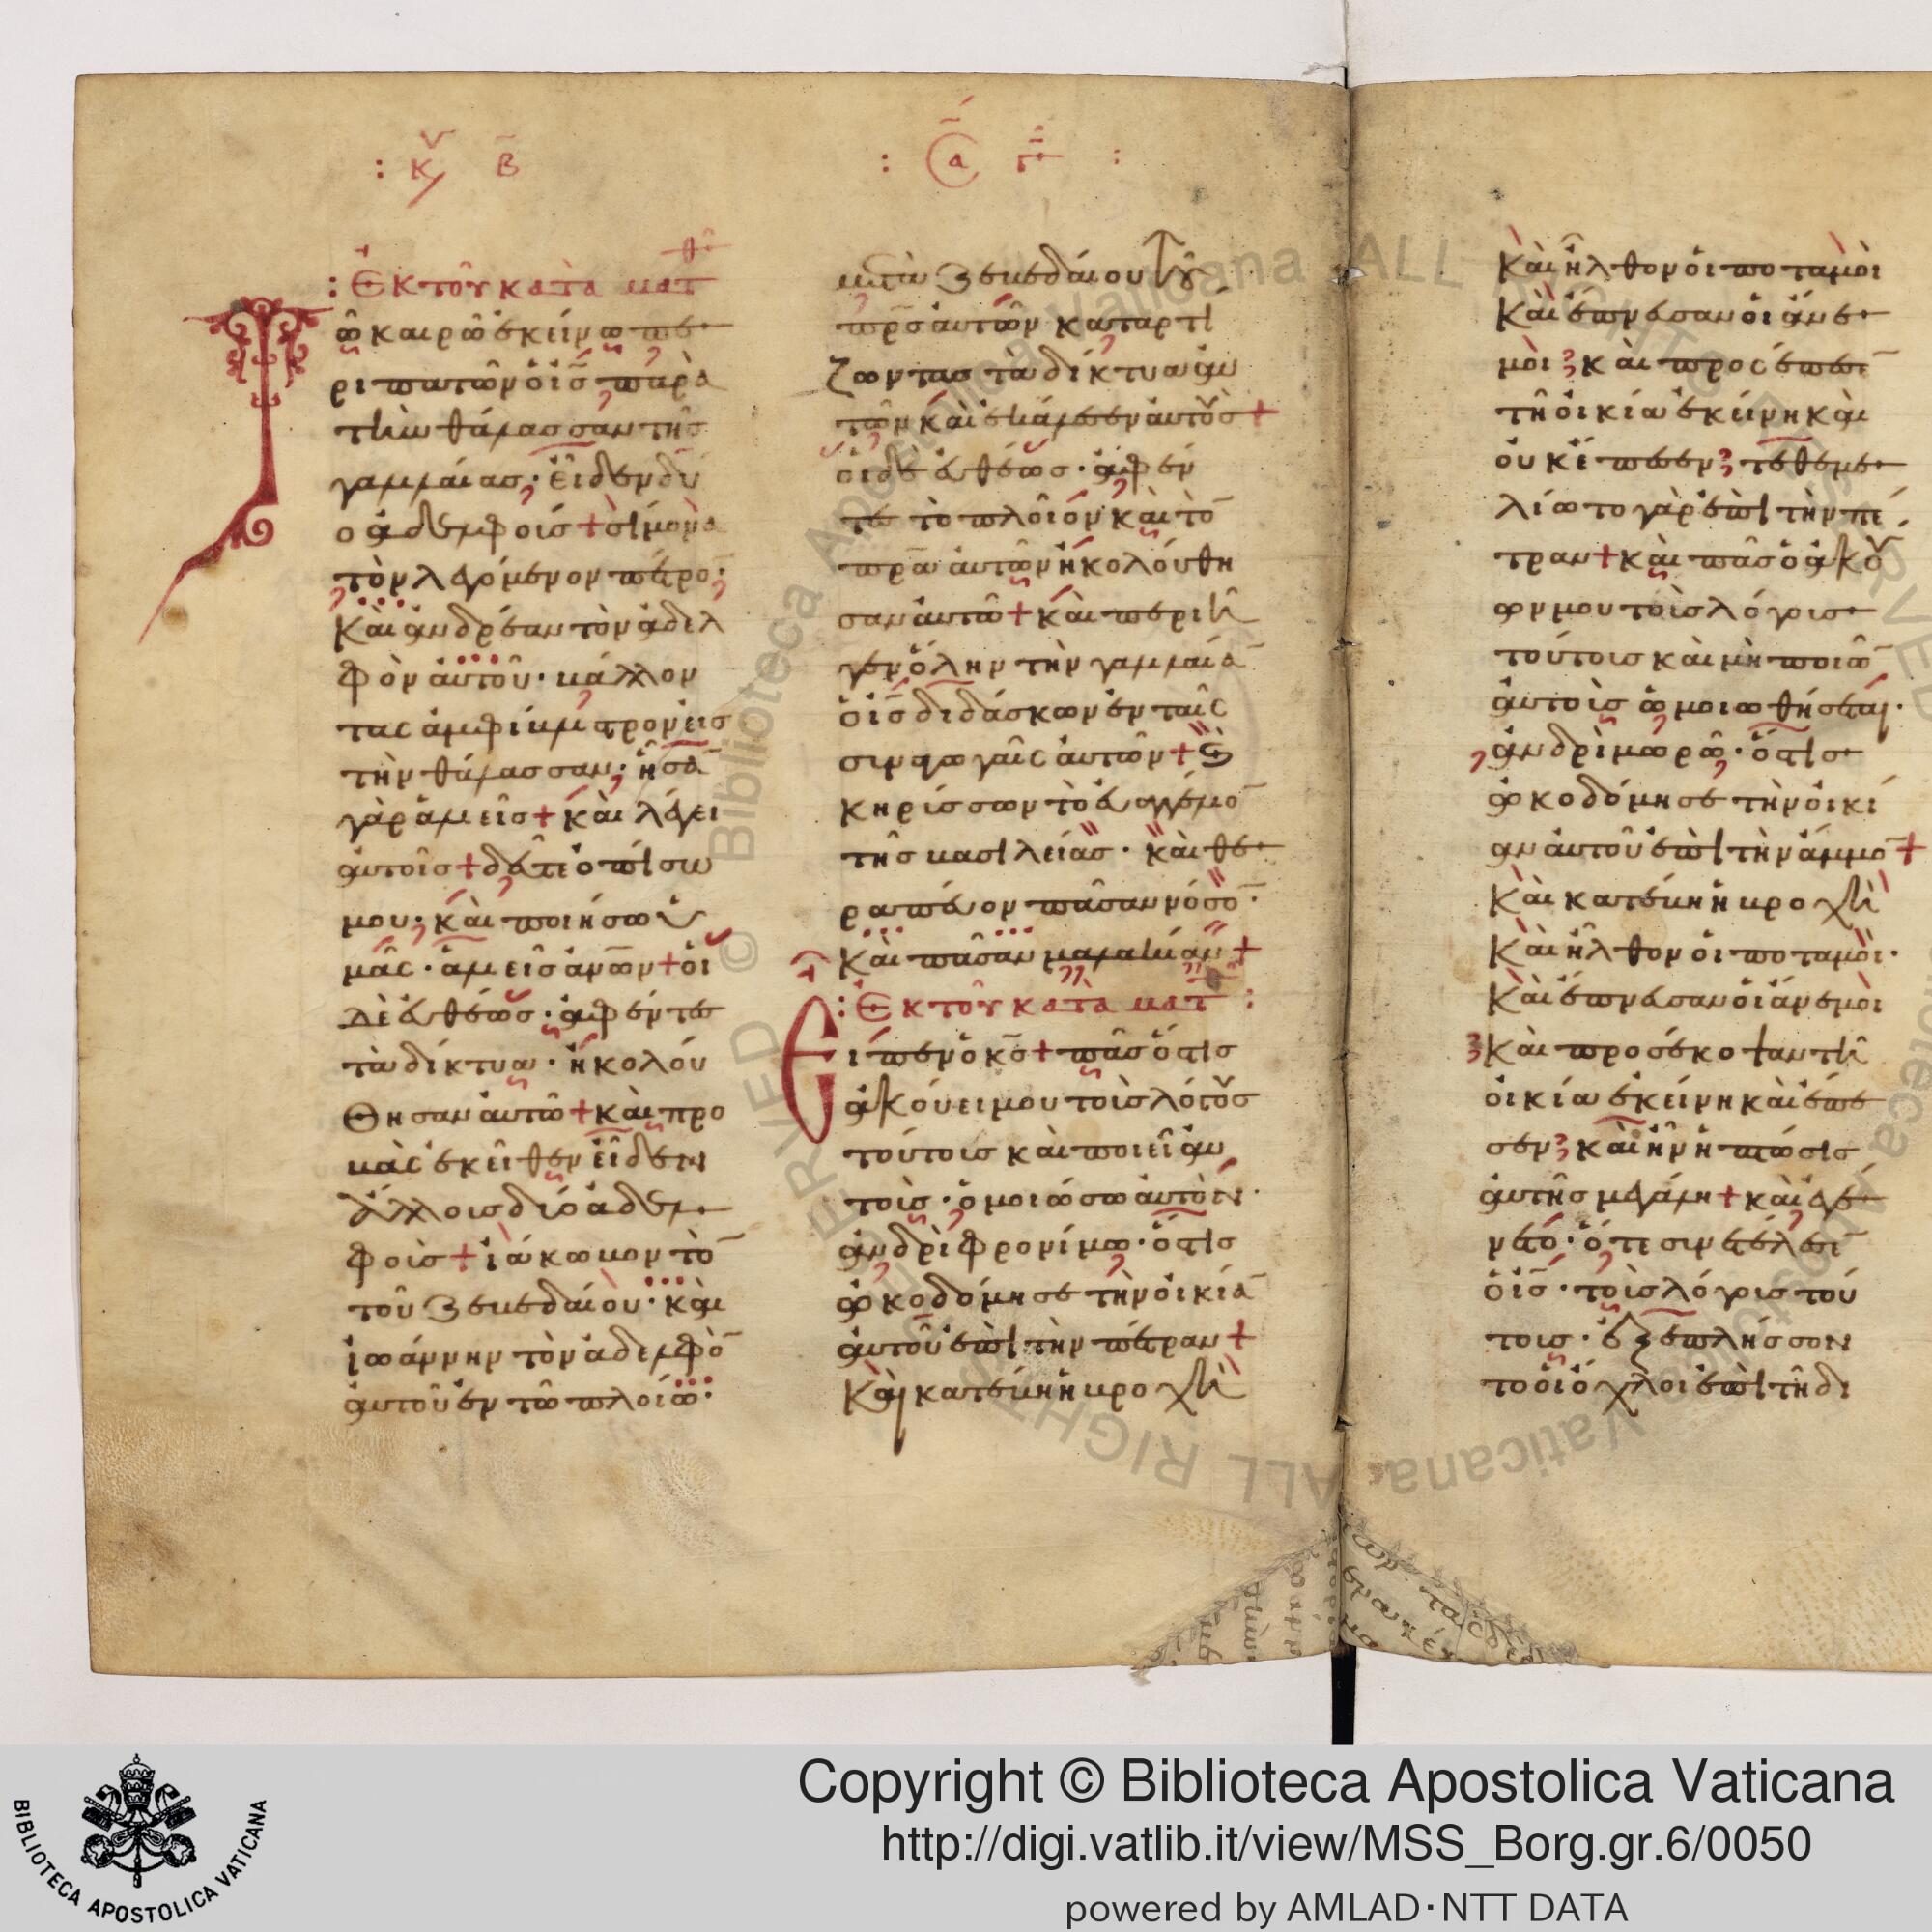 : κυ β
: Ἐκ τοῦ κατὰ ματθ
τῶ καιρῶ ἐκείνω πε
ριπατῶν ὁ ἰς παρὰ
τὴν θάλασσαν τῆς
γαλλαίας· εἶδεν δύ
ο ἀδελφοίς + σίμονα
τὸν λεγόμενον πέτρο̅·
Καὶ ἀνδρέαν τὸν ἀδελ
φὸν ἀυτοῦ· βάλλον
τας ἀμφίβληστρον εἰς
τὴν θάλασσαν· ἦσα̅
γὰρ ἁλιεῖς + Καὶ λέγει
ἀυτοῖς + δεῦτε ὀπίσω
μου· καὶ ποιήσω ὑ
μᾶς· ἁλιεῖς ἀνων + ὁι
Δὲ ἐυθέως· ἀφέντες
τὰ δίκτυα· ἠκολού
Θησαν ἀυτῶ + Καὶ προ
βὰς ἐκεῖθεν εἶδεν
ἄλλοις δύο ἀδελ
φοὶς + ἰάκωβον τὸ̅
τοῦ Ζεβεδαίου· κὰι
ἰωάννην τὸν ἀδελφὸ̅
ἀυτοῦ ἐν τῶ πλοίω·
: α γ :
μετὰ Ζεβεδαίου τοῦ
πρς ἀυτῶν καταρτί
ζωντας τὰ δίκτυα ἀυ
τῶν καὶ ἐκάλεσεν ἀυτοὺς +
ὁι δὲ ἐυθέως· ἀφέν
τες τὸ πλοῖον καὶ τὸ̅
πρα ἀυτῶν ἠκολούθη
σαν ἀυτῶ + Καὶ περιῆ
γεν ὅλην τὴν γαλλαία̅
ὁ ἰς διδάσκων ἐν ταῖς
σιναγωγαῖς ἀυτῶν + Καὶ
κηρίσσων τὸ ἐυαγγέλιο̅
τῆς βασιλείας· καὶ θε
ραπέυον πᾶσαν νόσο̅·
Καὶ πᾶσαν μαλακίαν +
: Ἐκ τοῦ κατὰ ματθ :
Εἶπεν ὁ κς + πᾶς ὅστις
ἀκούει μου τοὶς λόγους
τούτοις καὶ ποιεῖ ἀυ
τοὶς· ὁμοιώσω ἀυτὸν·
ἀνδρὶ φρονίμω· ὅστις
ὠκοδόμησε τὴν ὀικία̅
ἀυτοῦ ἐπὶ τὴν πέτραν +
Κὰι κατέβη ἡ βροχὴ
Κὰι ἦλθον ὁι ποταμὸι
Κὰι ἔπνευσαν οἱ ἄνε
μὸι καὶ προσέπεσε̅
τῆ ὀικία ἐκείνη κὰι
ὀυκ ἔπεσεν τεθεμε
λίωτο γὰρ ἐπὶ τὴν πέ
τραν + Κὰι πᾶς ὁ ἀκού
ων μου τοὶς λόγοις
τούτοις καὶ μὴ ποιῶ̅
ἀυτοὶς ὡμοιωθήσεται·
ἀνδρὶ μωρῶ· ὅστις
ὠκοδόμησε τὴν ὀικί
αν ἀυτοῦ ἐπὶ τὴν ἄμμο̅ +
Κὰι κατέβη ἡ βροχὴ
Κὰι ἦλθον ὁι ποταμὸι·
Κὰι ἔπνευσαν ὁι ἄνεμοι
Κὰι προσέκοψαν τῆ
ὀικία ἐκείνη κὰι ἔπε
σεν καὶ ἦν ἡ πτῶσις
ἀυτῆς μεγάλη + κὰι ἐγέ
νετο· ὅτε σινετέλεσε̅
ὁ ἰς· τοὶς λόγοις τού
τοις· ἐξεπλήσσον
το ὁι ὄχλοι ἐπὶ τῆ δι
BIBLIOTECA APOSTOLICA VATICANA
Copyright © Biblioteca Apostolica Vaticana
http://digi.vatlib.it/view/MSS_Borg.gr.6/0050
powered by AMLAD·NTT DATA